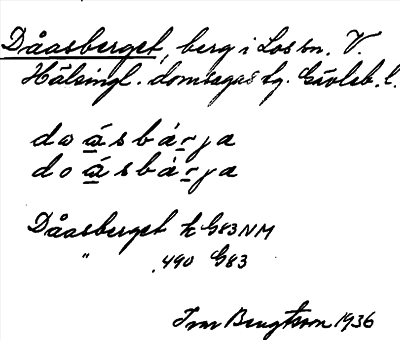 Dåasberget, berg i Los sn. V.
Hälsingl. domsagas tg. Gävleb. l.
do ásbárja
do ásbárja
Dåasberget k G83NM
" 490 G83
Ivar Bengtsson 1936